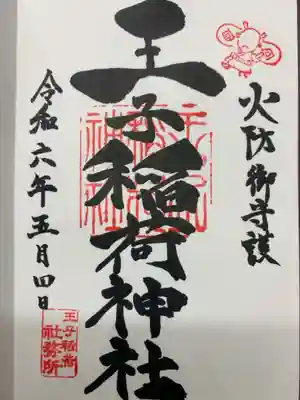 火防御守護
王子稲荷神社
令和六年五月四日
王子稲荷
社務所